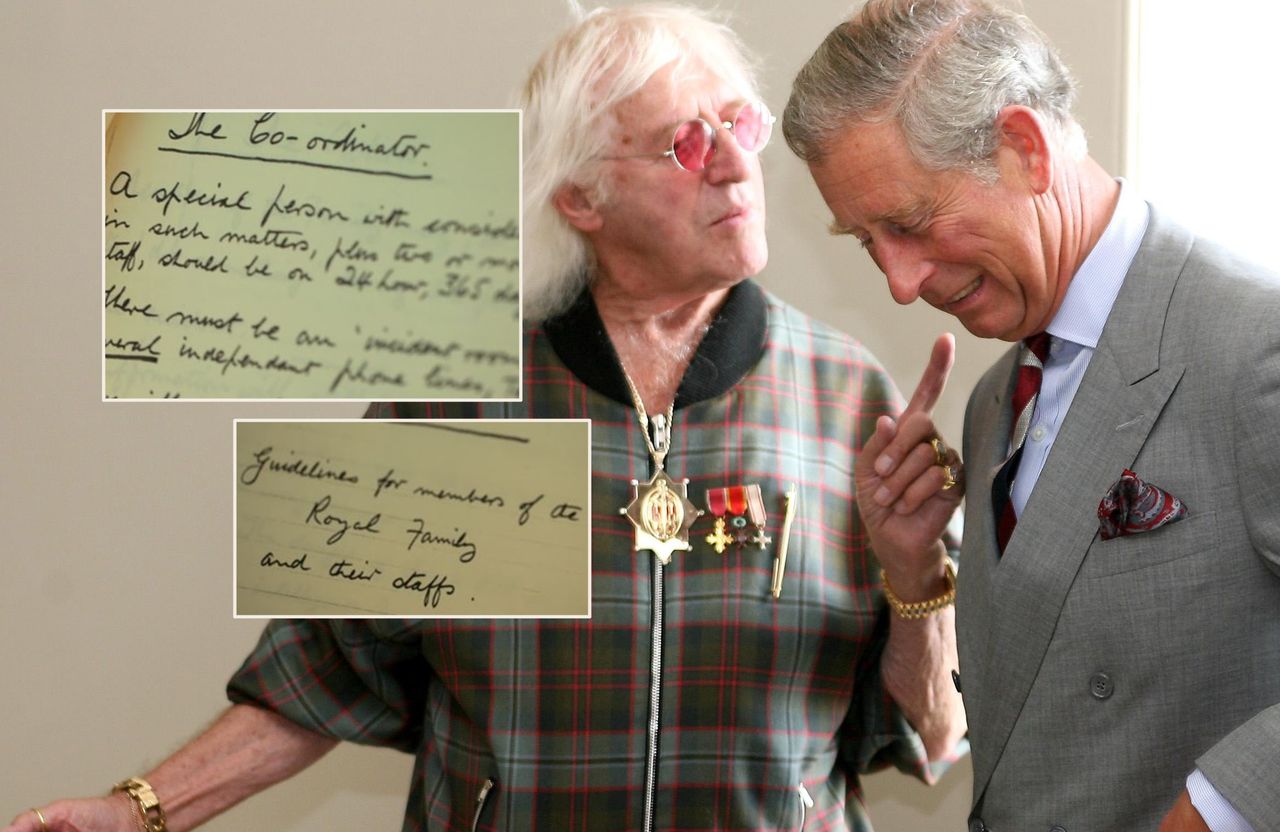 The Co-ordinator.
A special person with
in such matters, plus two or
should be on 24 hour, 365
there must be an 'incident
independent phone lines,
Guidelines for members of the
Royal Family
and their staffs.